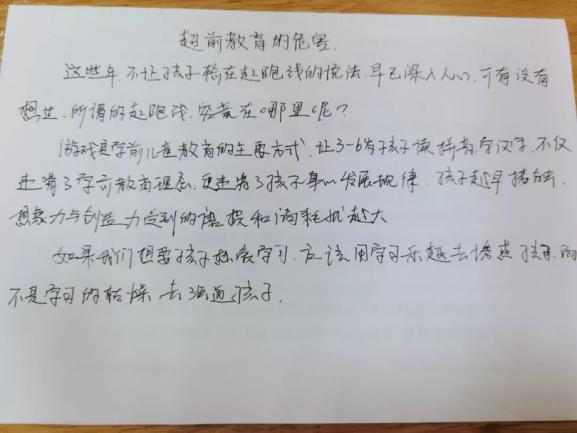 超前教育的危害.
这些年,不让孩子输在起跑线的说法,早已深入人心,可有没有
想过,所谓的起跑线,究竟在哪里呢?
游戏是学前儿童教育的主要方式,让3-6岁孩子读拼音,学汉字,不仅
违背了学前教育理念,更违背了孩子身心发展规律,孩子越早接触,
想象力与创造力受到的误损和消耗就越大
如果我们想要孩子热爱学习,应该用学习乐趣去诱惑孩子,而
不是学习的枯燥去强迫孩子.